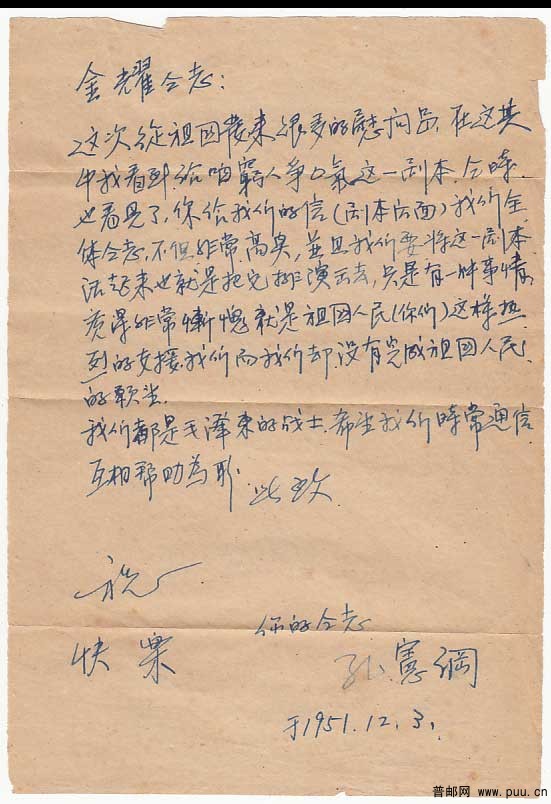 金耀仝志：
这次從祖国帶来很多的慰问品，在这其
中我看到给咱窮人争口氣这一剧本，仝時
也看見了，你给我们的信（剧本后面）我们全
体仝志，不但非常高兴，並且我们要将这一剧本
活起来也就是把它排演出去，只是有一种事情
覚得非常慚愧就是祖国人民（你们）这样热
烈的支援我们而我们却没有完成祖国人民
的願望
我们都是毛泽東的战士，希望我们時常通信
互相帮助為盼 此致
祝
快樂
你的仝志
孙憲綱
于1951.12.3.
普邮网 www.puu.cn